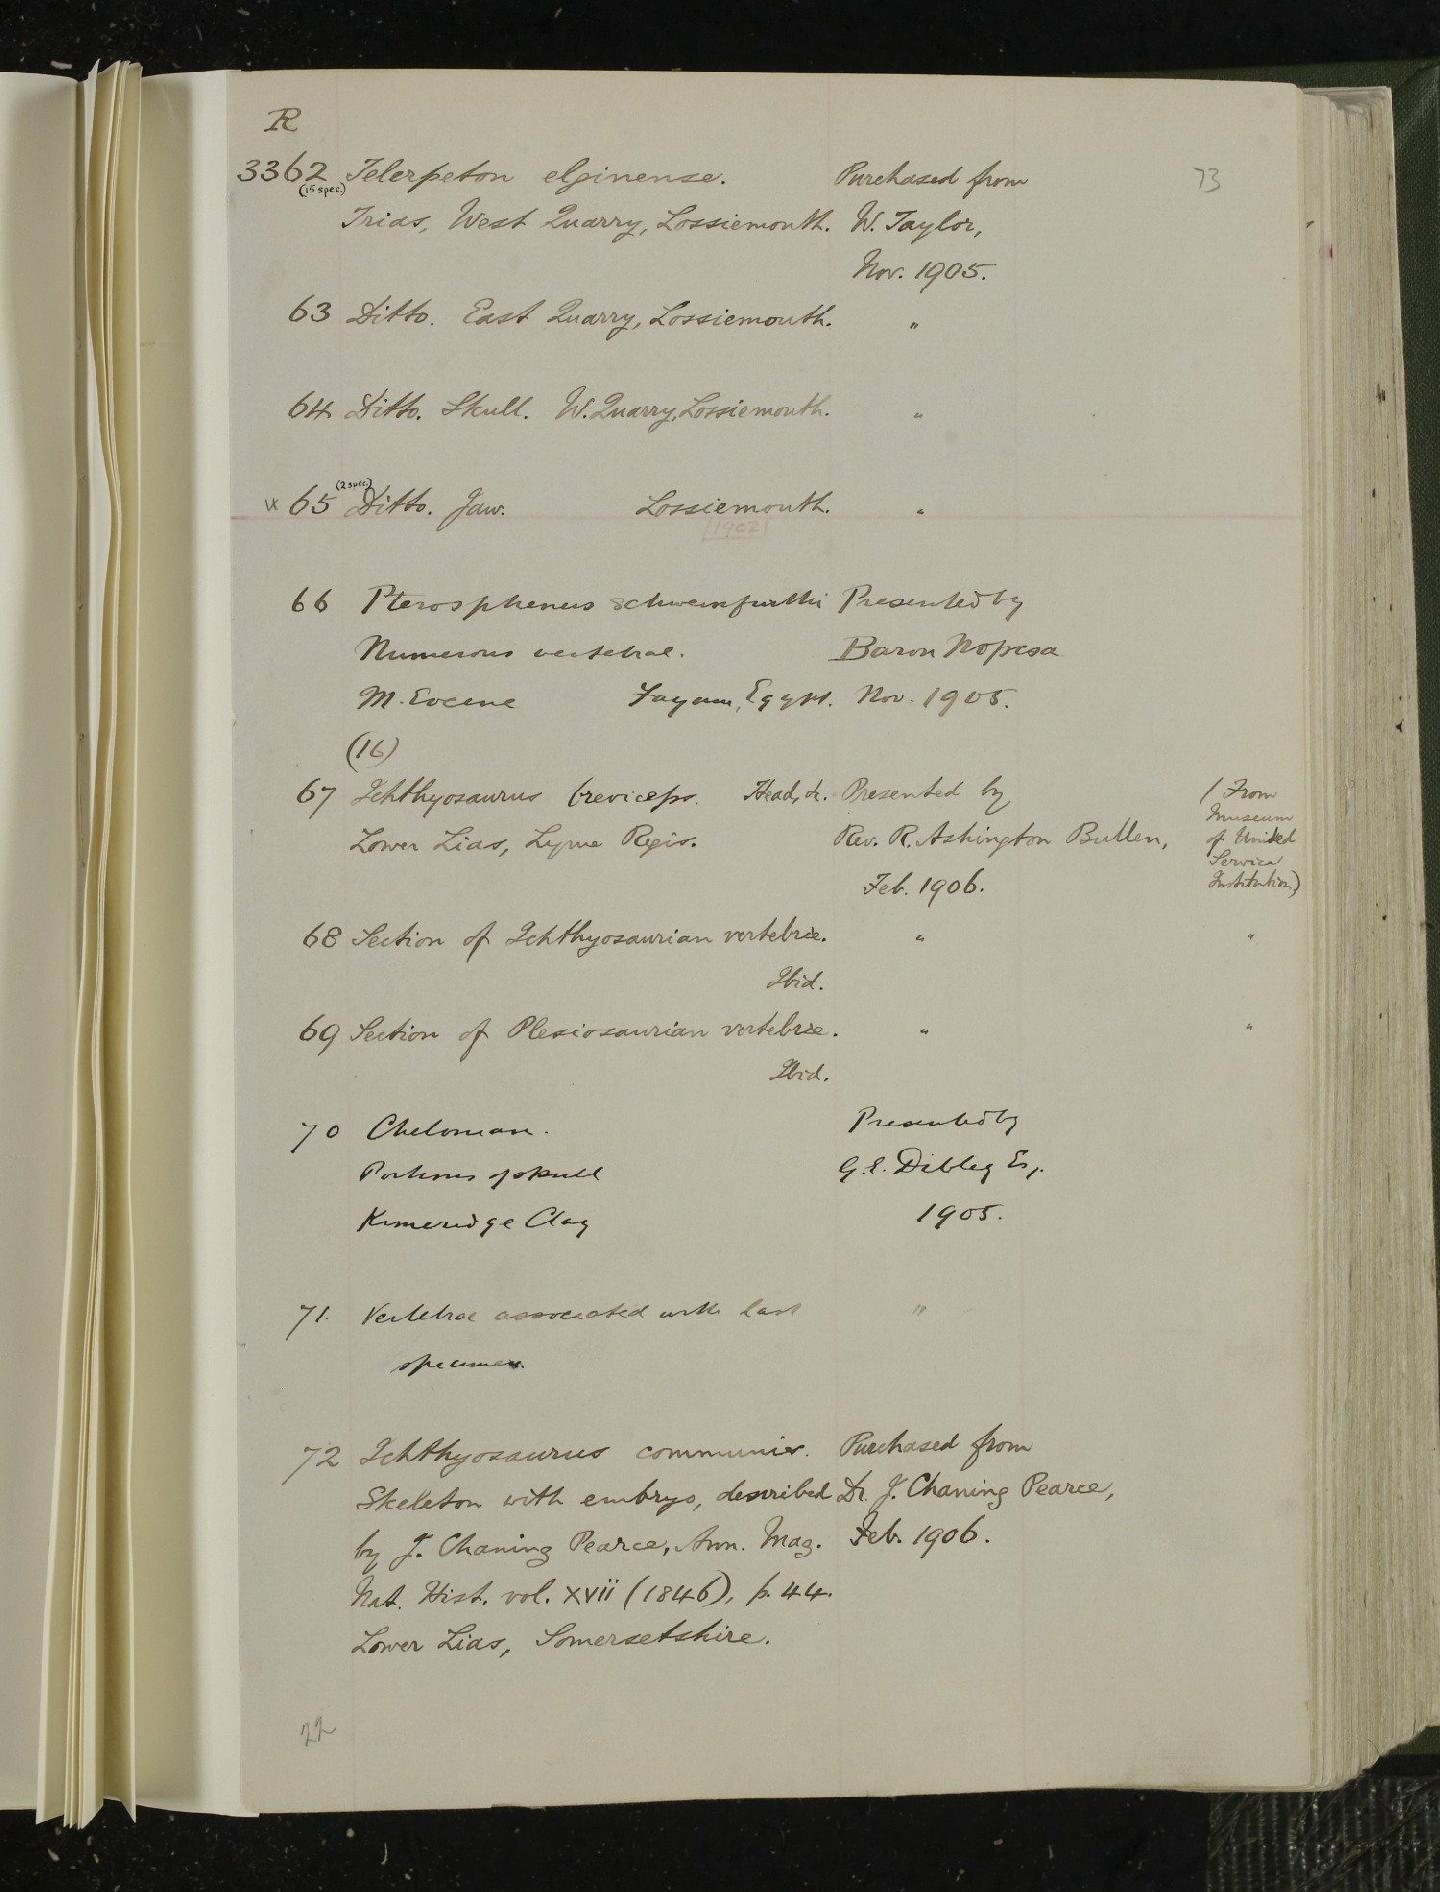 R
73
3362 Telerpeton elginense. Purchased from
(15 spec.)
Trias, West Quarry, Lossiemouth. W. Taylor,
Nov. 1905.
63 Ditto. East Quarry, Lossiemouth. "
64 Ditto. Skull. W. Quarry, Lossiemouth. "
(2 spec.)
65 Ditto. Jaw. Lossiemouth. "
[1902]
66 Pterosphenus schweinfurthi Presented by
Numerous vertebrae. Baron Nopcsa
M. Eocene Fayum, Egypt. Nov. 1905.
(16)
67 Ichthyosaurus breviceps. Head, &c. Presented by (From
Museum
Lower Lias, Lyme Regis. Rev. R. Ashington Bullen, of United
Service
Feb. 1906. Institution)
68 Section of Ichthyosaurian vertebræ. " "
Ibid.
69 Section of Plesiosaurian vertebræ. " "
Ibid.
70 Chelonian. Presented by
Portions of skull G. E. Dibley Esq.
Kimeridge Clay 1905.
71. Vertebrae associated with last "
specimen.
72 Ichthyosaurus communis. Purchased from
Skeleton with embryo, described Dr. J. Chaning Pearce,
by J. Chaning Pearce, Ann. Mag. Feb. 1906.
Nat. Hist. vol. xvii (1846), p. 44.
Lower Lias, Somersetshire.
22